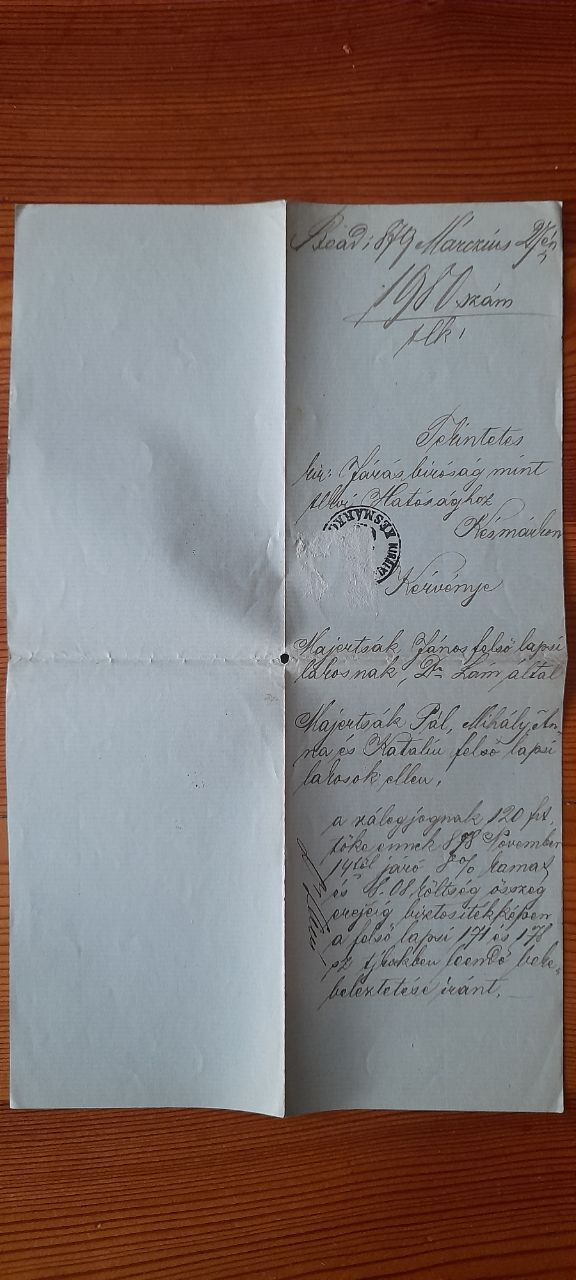 Bead: 879 Márczius 27én
1980 szám
tlk:
Tekintetes
kir: Járásbiróság mint
tlkvi Hatósághoz
Késmárkon
KÉSMÁRKI KIRÁLYI
Kérvénye
Majertsák János felső lapsi
lakosnak, Dr Lám által
Majertsák Pál, Mihály, An-
na és Katalin felső lapsi
lakosok ellen,
a zálogjognak 120 frt.
tőke ennek 878 November
14től járó 8% kamat
és 11.08 költség összeg
erejéig biztositékképen
a felső lapsi 171 és 178
sz tjkvekben leendő beke-
beleztetése iránt.